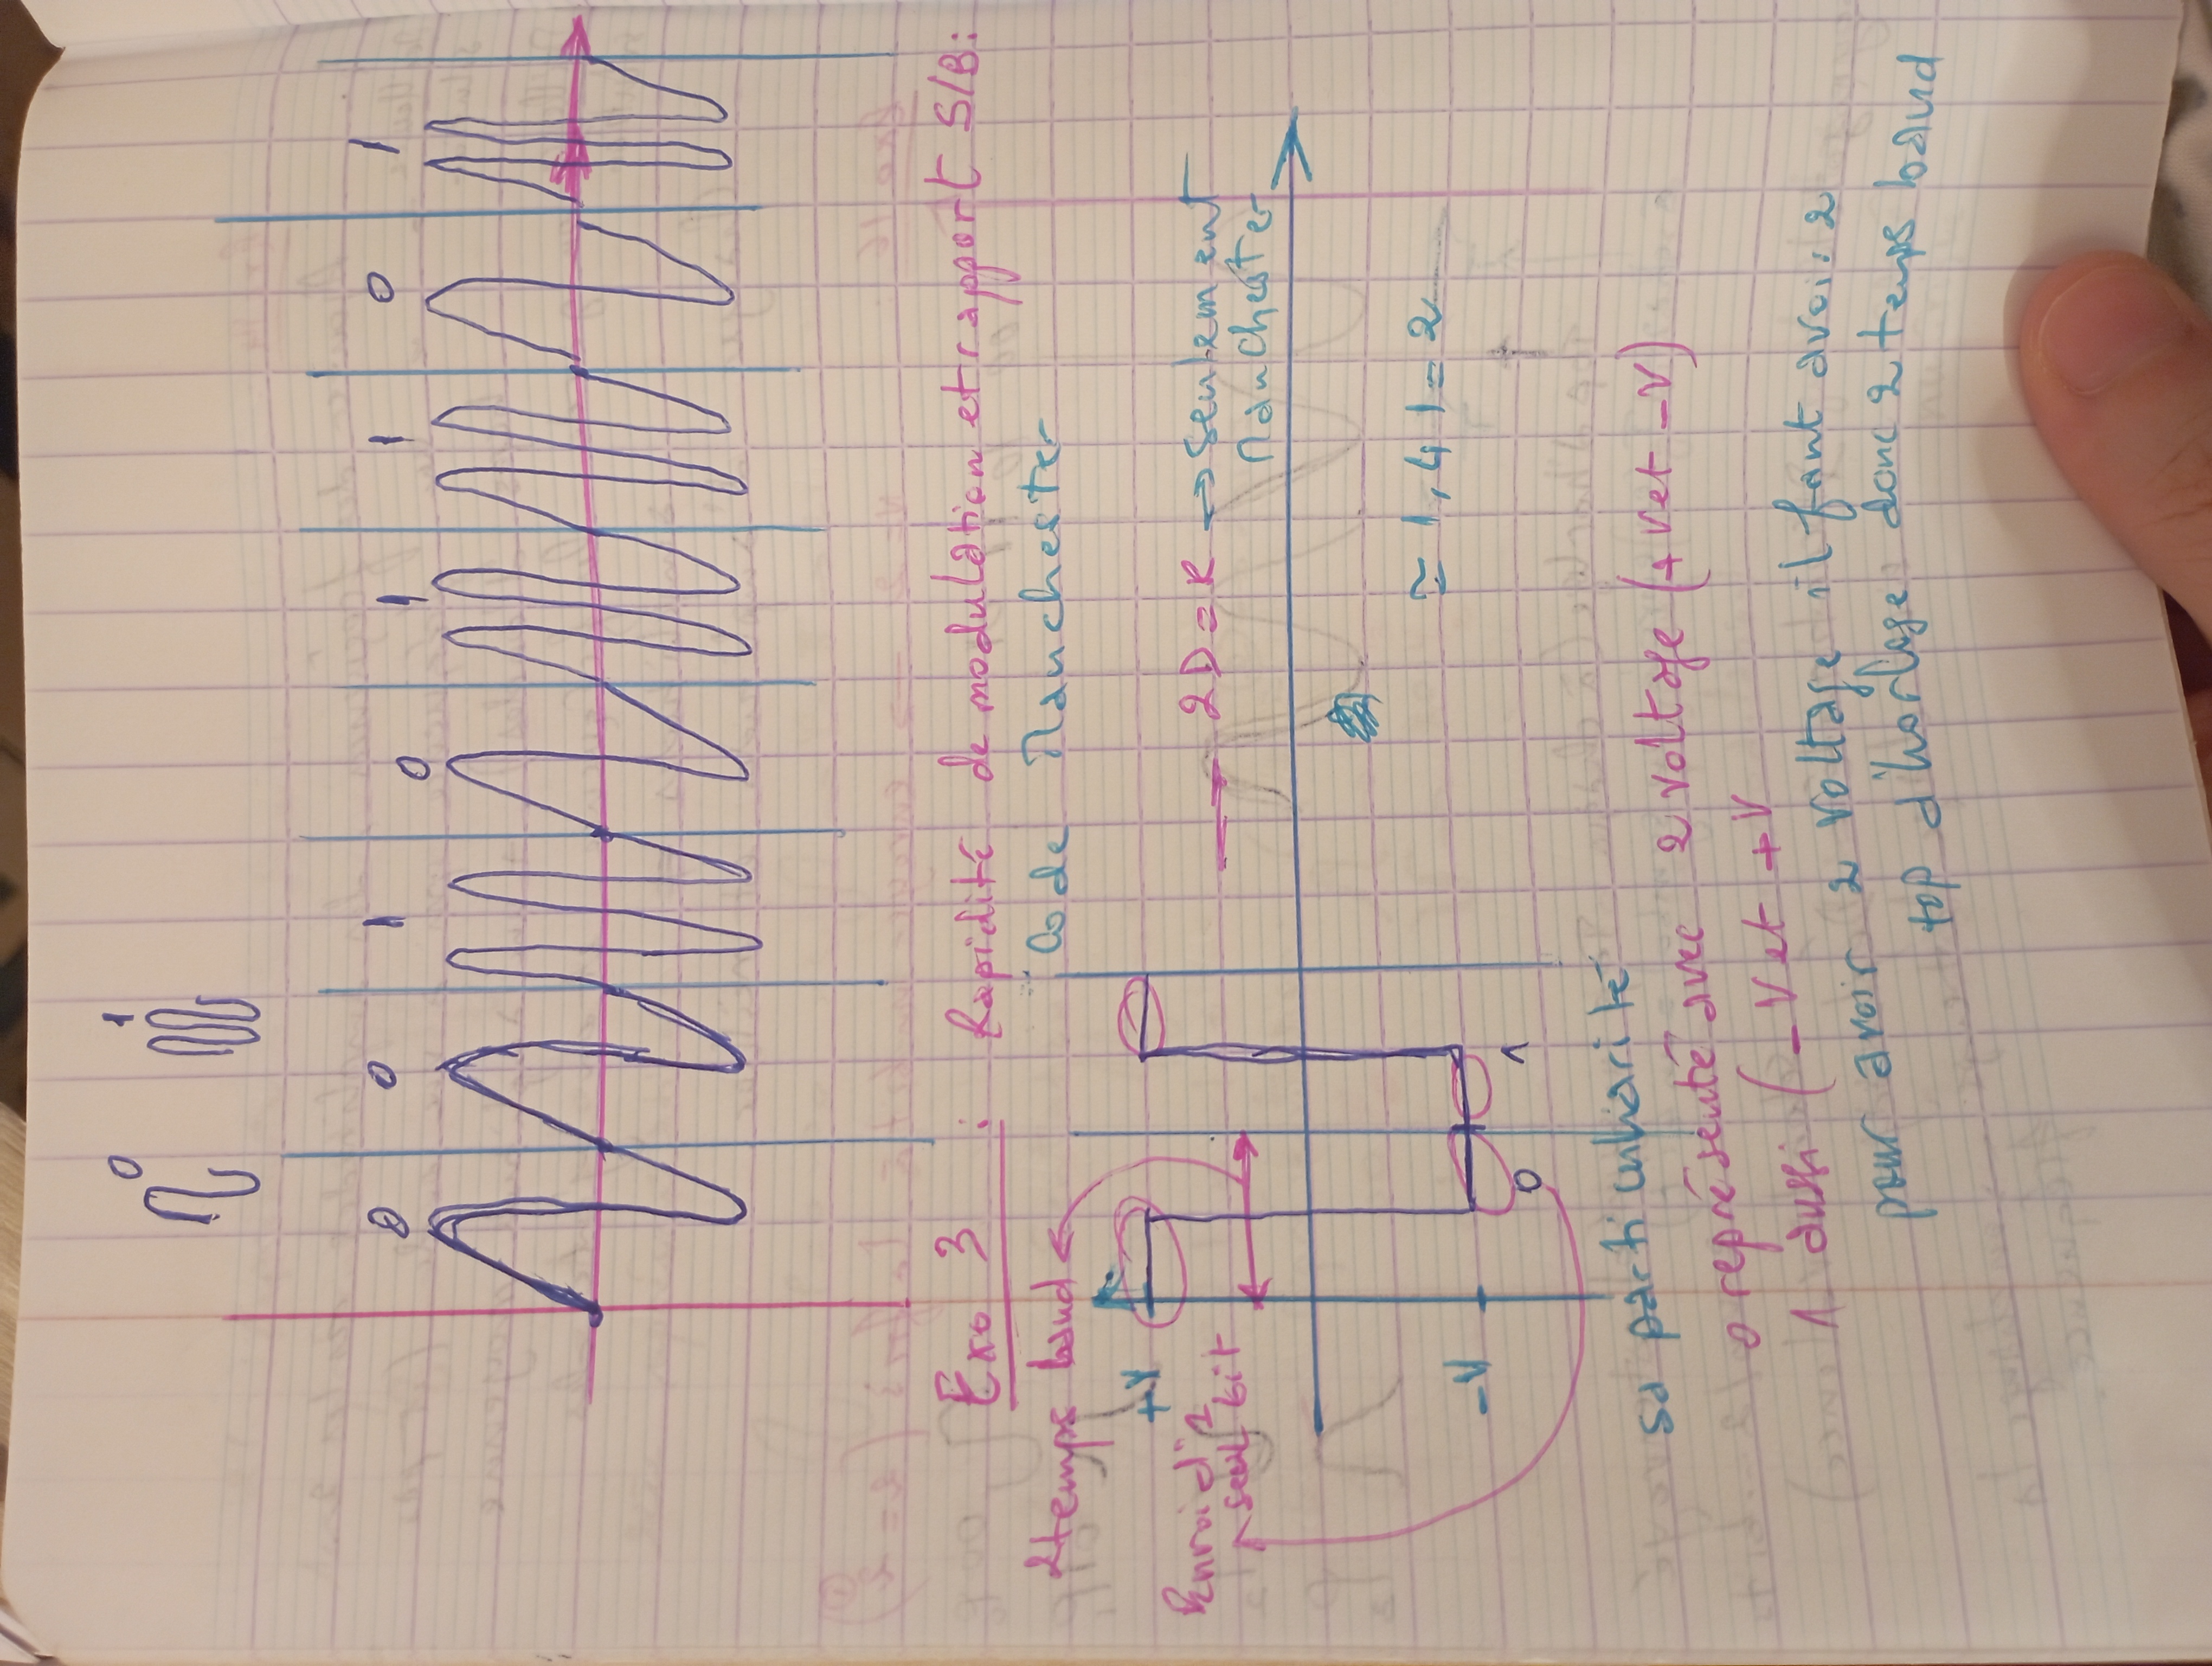 0 1
0 0 1 0 1 1 0 1
Exo 3 : Rapidité de modulation et rapport S/B :
Code Manchester
2 temps baud
+V
Envoi d'1
seul bit
→ 2D = R → seulement
Manchester
≃ 1,41 = 2
-V
0 1
sa particularité
0 représenté avec 2 voltage (+V et -V)
1 aussi (-V et +V
pour avoir 2 voltage il faut avoir 2
top d'horloge donc 2 temps baud